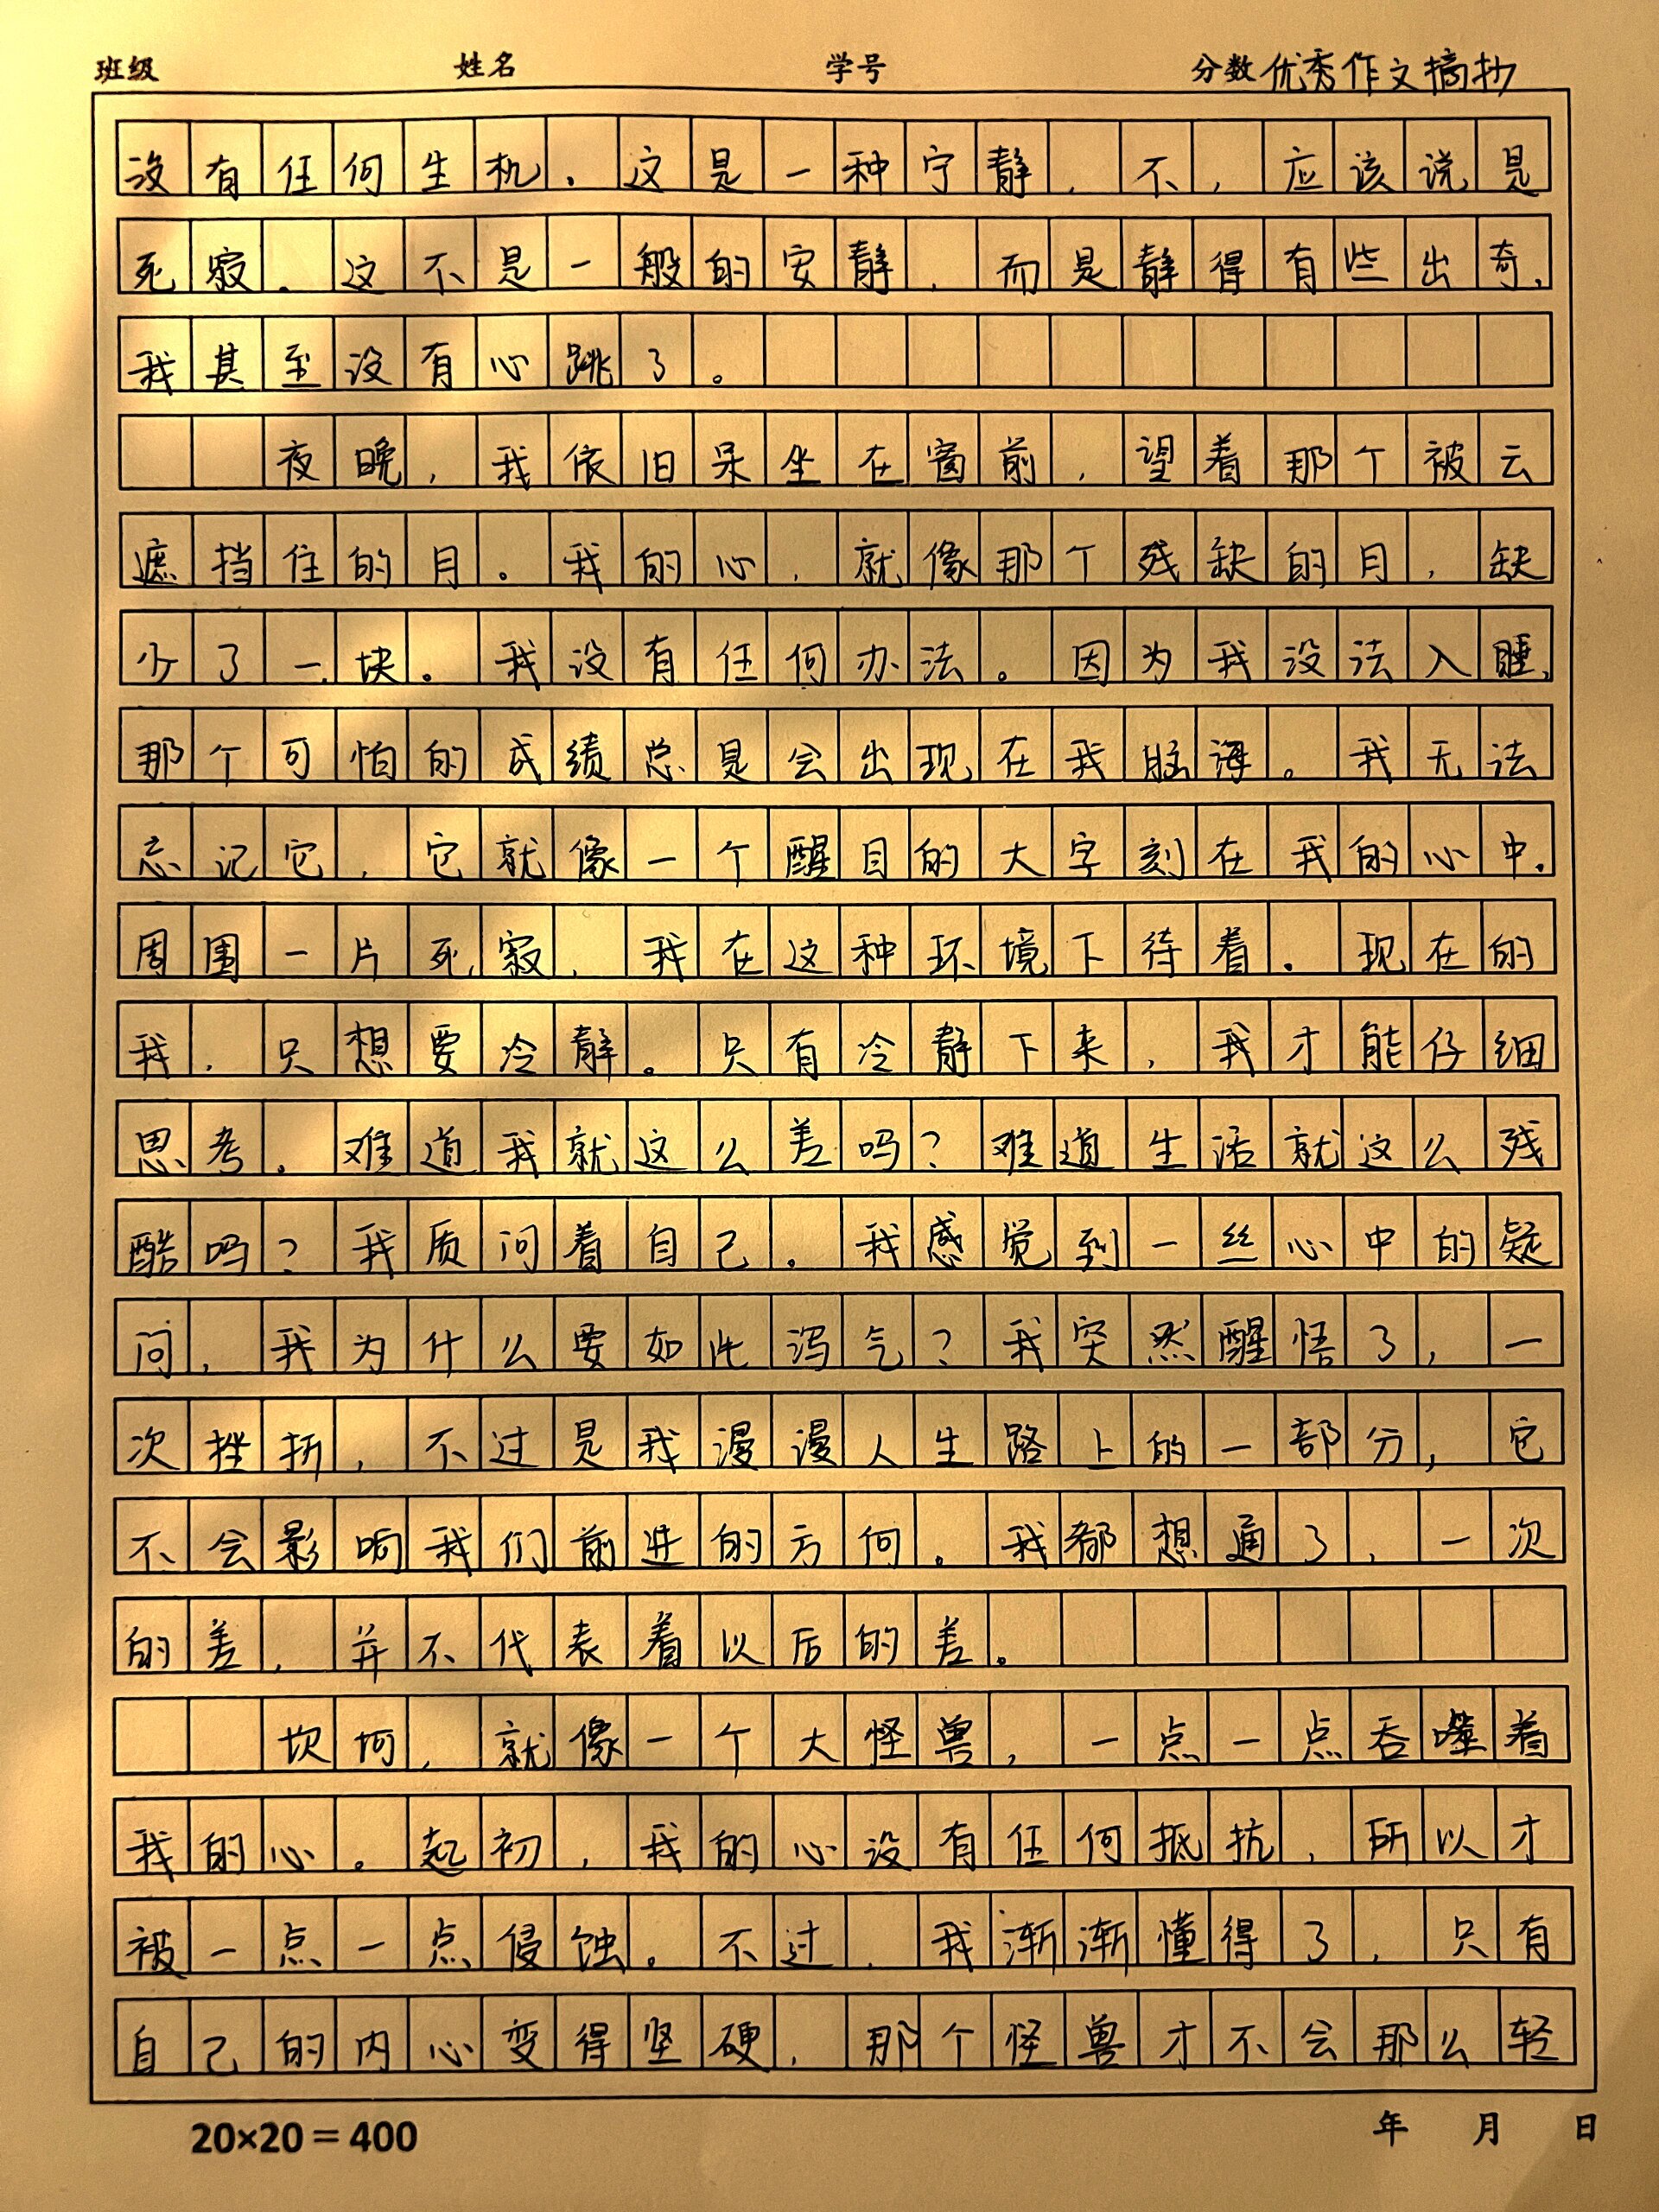 班级 姓名 学号 分数 优秀作文摘抄
没有任何生机。这是一种宁静，不，应该说是
死寂。这不是一般的安静，而是静得有些出奇，
我甚至没有心跳了。
夜晚，我依旧呆坐在窗前，望着那个被云
遮挡住的月。我的心，就像那个残缺的月，缺
少了一块。我没有任何办法。因为我没法入睡，
那个可怕的成绩总是会出现在我脑海。我无法
忘记它，它就像一个醒目的大字刻在我的心中。
周围一片死寂，我在这种环境下待着。现在的
我，只想要冷静。只有冷静下来，我才能仔细
思考。难道我就这么差吗？难道生活就这么残
酷吗？我质问着自己。我感觉到一丝心中的疑
问，我为什么要如此泻气？我突然醒悟了，一
次挫折，不过是我漫漫人生路上的一部分，它
不会影响我们前进的方向。我都想通了，一次
的差，并不代表着以后的差。
坎坷，就像一个大怪兽，一点一点吞噬着
我的心。起初，我的心没有任何抵抗，所以才
被一点一点侵蚀。不过，我渐渐懂得了，只有
自己的内心变得坚硬，那个怪兽才不会那么轻
20×20＝400 年 月 日